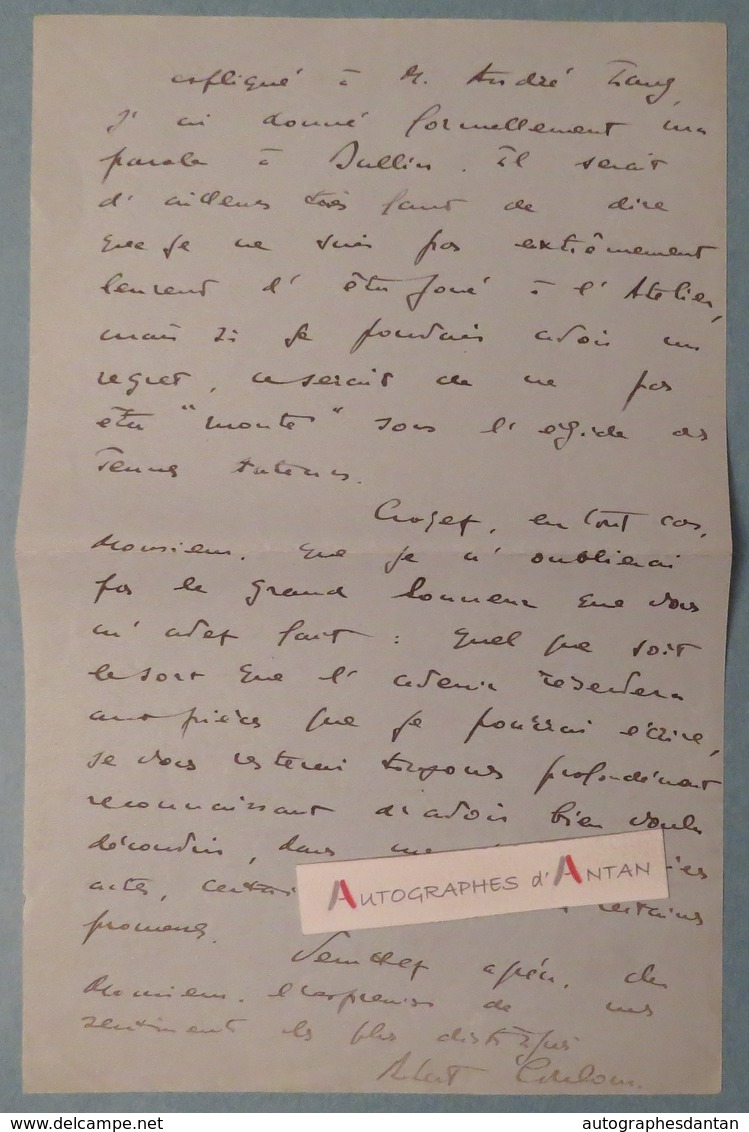 expliqué à M. André Lang,
j'ai donné formellement ma
parole à Dullin. Il serait
d'ailleurs très faux de dire
que je ne suis pas extrêmement
heureux d'être joué à l'Atelier,
mais si je pouvais avoir un
regret, ce serait de ne pas
être "monté" sous l'égide des
Jeunes Auteurs.
Croyez, en tout cas,
Monsieur, que je n'oublierai
pas le grand honneur que vous
m'avez fait : quel que soit
le sort que l'avenir réservera
aux pièces que je pourrai écrire,
je vous resterai toujours profondément
reconnaissant d'avoir bien voulu
découvrir, dans
actes, certains
promesses.
Veuillez agréer, cher
Monsieur, l'expression de mes
sentiments les plus distingués
AUTOGRAPHES d'ANTAN
delcampe.net
autographesdantan